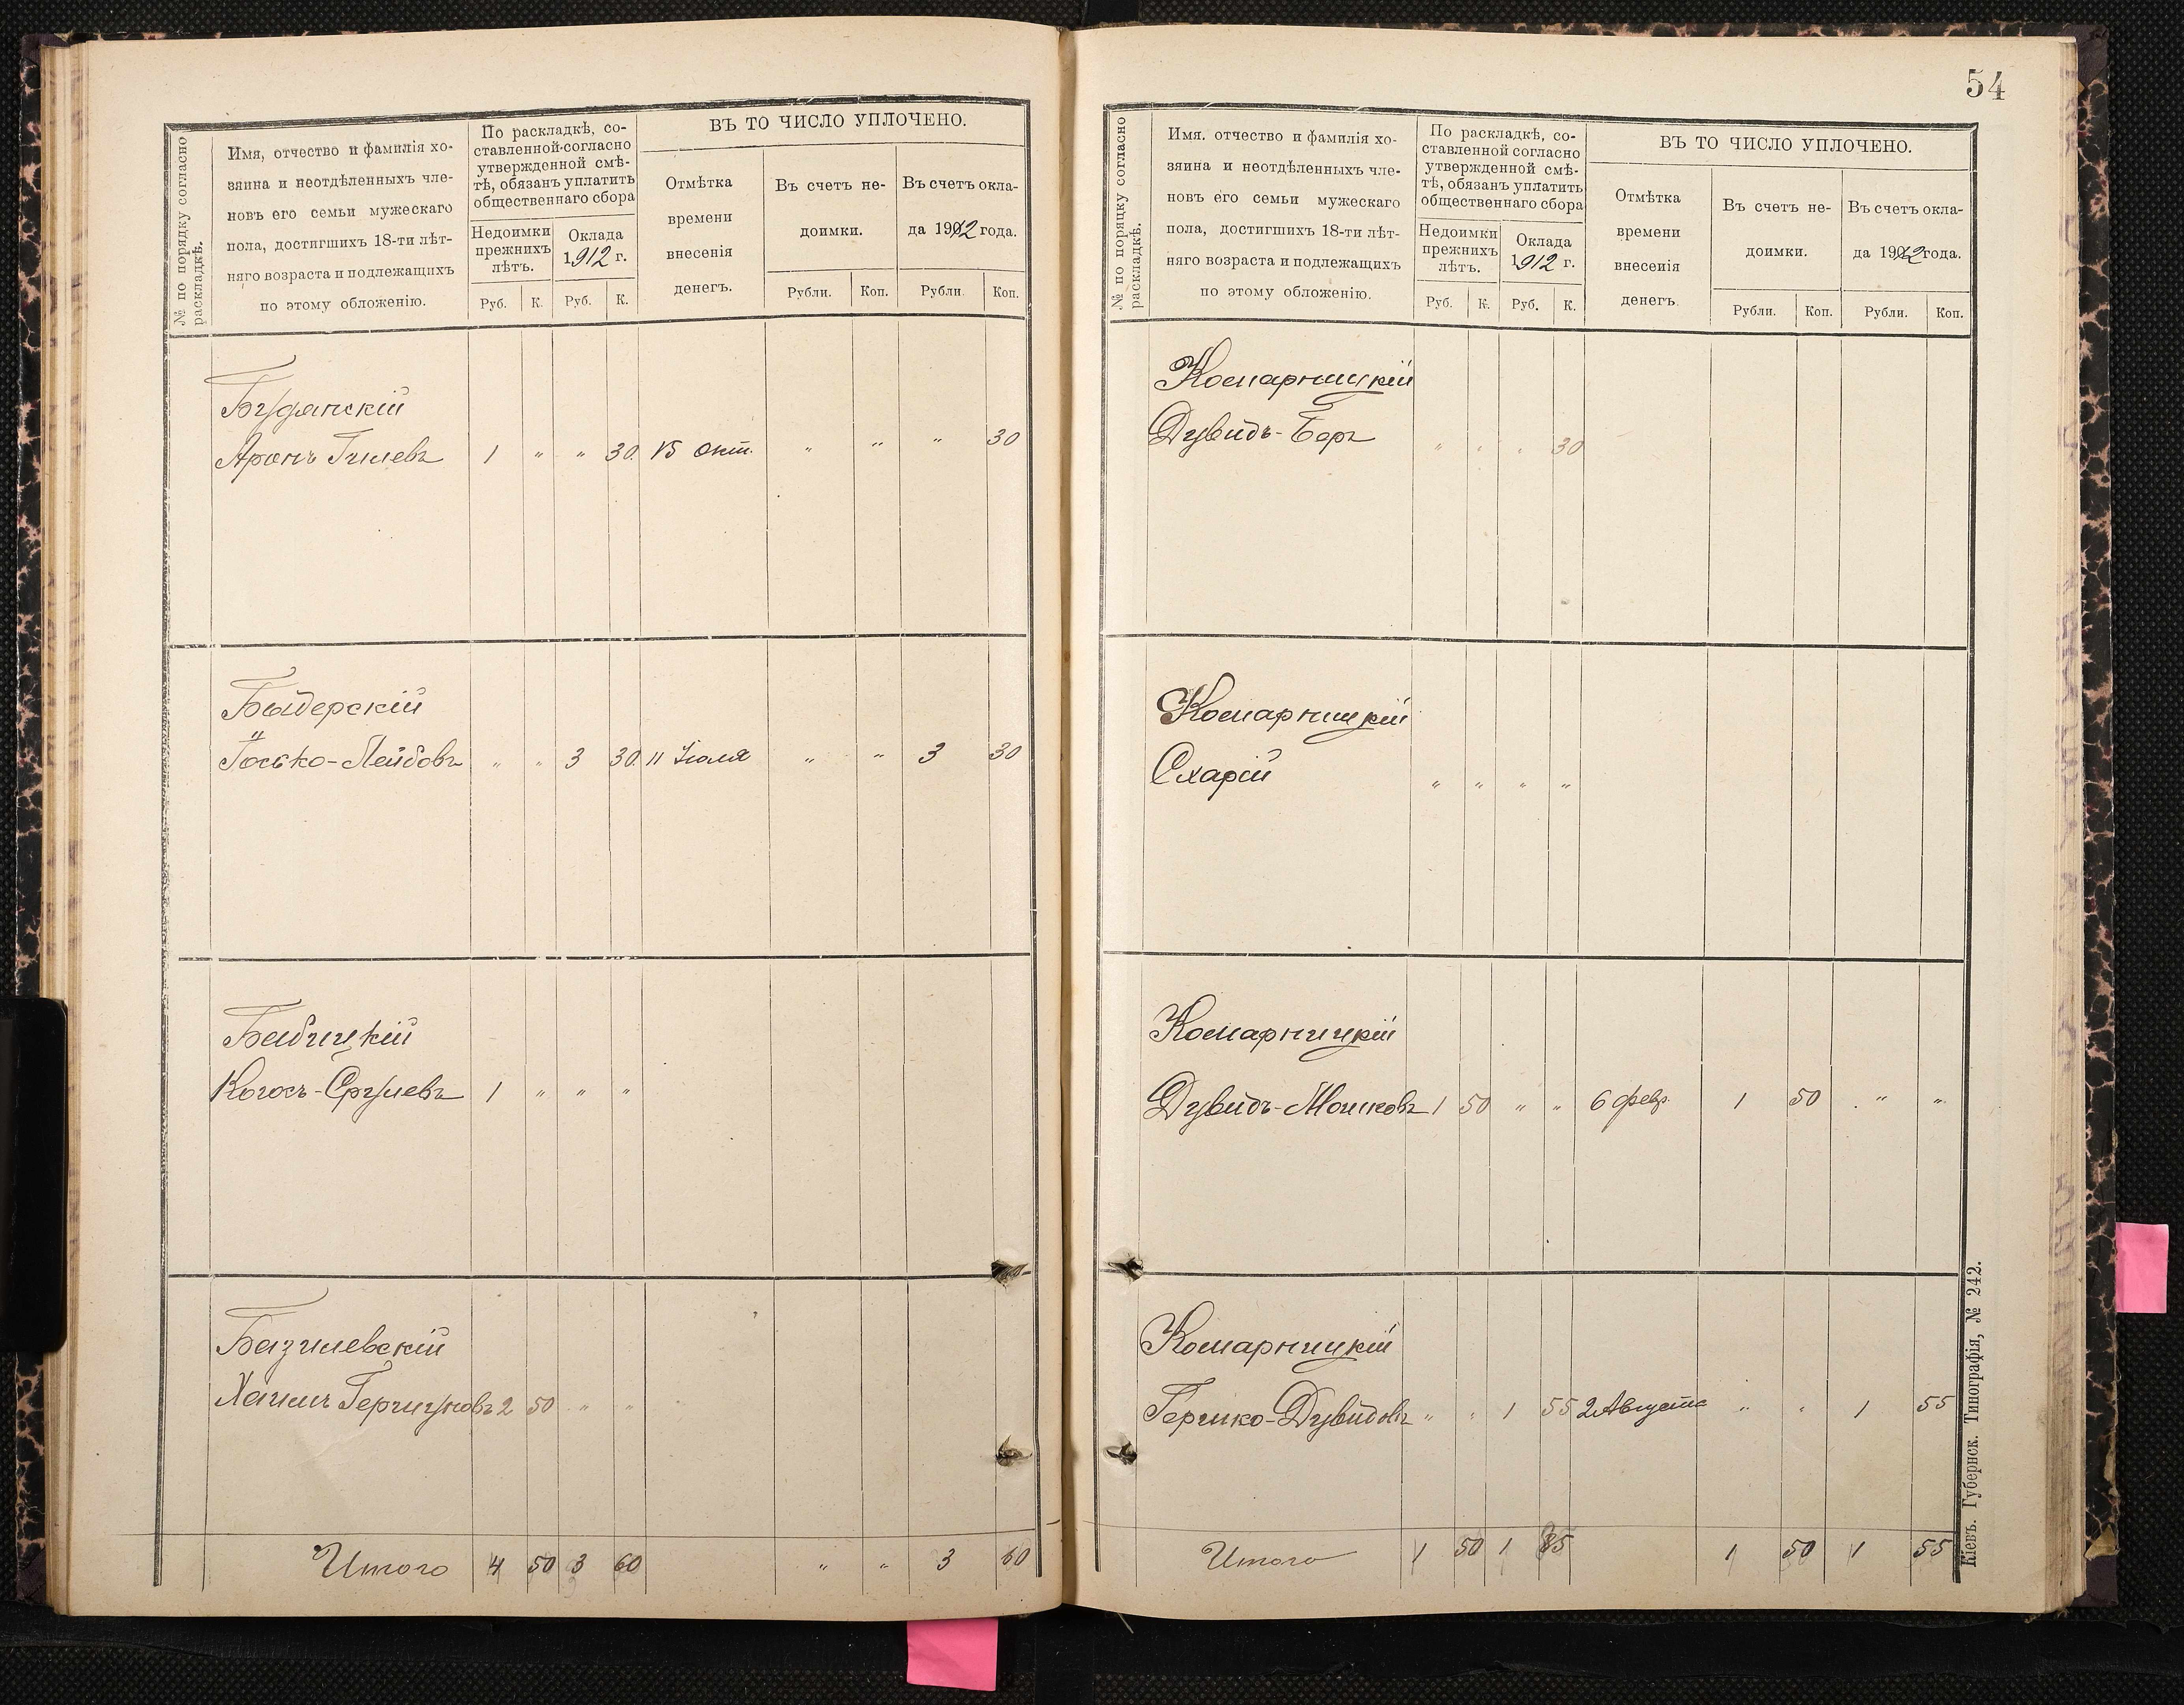 № по порядку согласно раскладкѣ.
Имя, отчество и фамилія хо-
зяина и неотдѣленныхъ чле-
новъ его семьи мужескаго
пола, достигшихъ 18-ти лѣт-
няго возраста и подлежащихъ
по этому обложенію.
По раскладкѣ, со-
ставленной согласно
утвержденной смѣ-
тѣ, обязанъ уплатить
общественнаго сбора
Недоимки
прежнихъ
лѣтъ.
Оклада
1912 г.
Руб. К. Руб. К.
ВЪ ТО ЧИСЛО УПЛОЧЕНО.
Отмѣтка
времени
внесенія
денегъ.
Въ счетъ не-
доимки.
Въ счетъ окла-
да 1912 года.
Рубли. Коп. Рубли. Коп.
Будянскій
Аронъ Гилевъ 1 " " 30 15 Окт. " " " 30
Быдерскій
Іосько-Лейбовъ " " 3 30 11 Іюля " " 3 30
Бабицкій
1 " " "
Базилевскій
2 50 " "
Итого 4 50 3 60 " " 3 60
54
№ по порядку согласно раскладкѣ.
Имя, отчество и фамилія хо-
зяина и неотдѣленныхъ чле-
новъ его семьи мужескаго
пола, достигшихъ 18-ти лѣт-
няго возраста и подлежащихъ
по этому обложенію.
По раскладкѣ, со-
ставленной согласно
утвержденной смѣ-
тѣ, обязанъ уплатить
общественнаго сбора
Недоимки
прежнихъ
лѣтъ.
Оклада
1912 г.
Руб. К. Руб. К.
ВЪ ТО ЧИСЛО УПЛОЧЕНО.
Отмѣтка
времени
внесенія
денегъ.
Въ счетъ не-
доимки.
Въ счетъ окла-
да 1912 года.
Рубли. Коп. Рубли. Коп.
Комарницкій
Дувидъ-Беръ " " " 30
Комарницкій
Схарій " " " "
Комарницкій
Дувидъ-Мошковъ 1 50 " " 6 февр. 1 50 " "
Комарницкій
Гершко-Дувидовъ " " 1 55 2 Августа " " 1 55
Итого 1 50 1 85 1 50 1 55
Кіевъ. Губернск. Типографія, № 242.